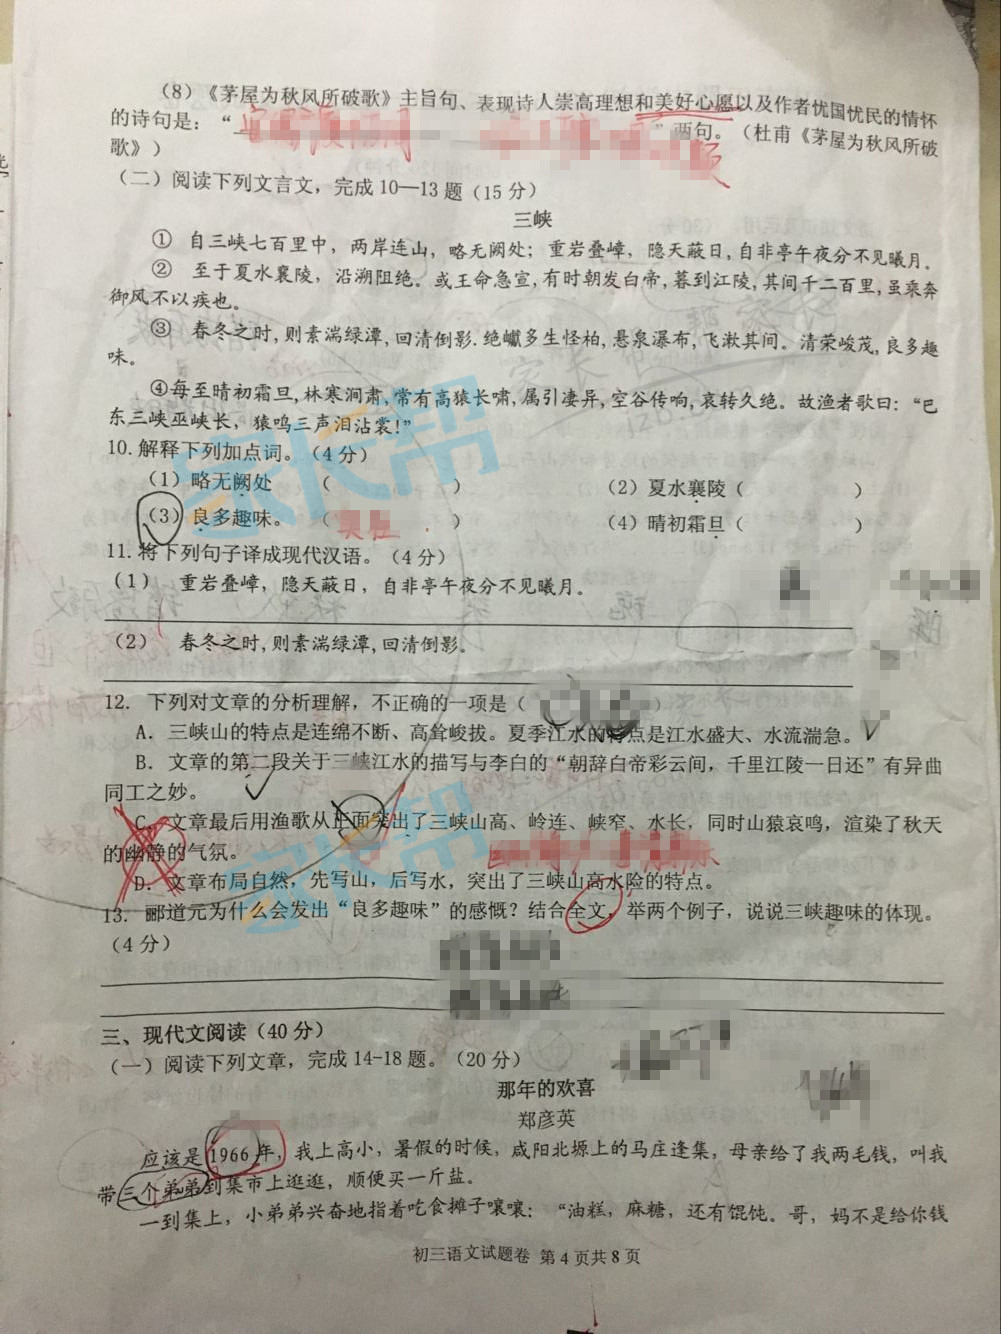 （8）《茅屋为秋风所破歌》主旨句、表现诗人崇高理想和美好心愿以及作者忧国忧民的情怀
的诗句是：“                ”两句。（杜甫《茅屋为秋风所破
歌》）
（二）阅读下列文言文，完成10—13题（15分）
三峡
① 自三峡七百里中，两岸连山，略无阙处；重岩叠嶂，隐天蔽日，自非亭午夜分不见曦月。
② 至于夏水襄陵，沿溯阻绝。或王命急宣，有时朝发白帝，暮到江陵，其间千二百里，虽乘奔
御风不以疾也。
③ 春冬之时，则素湍绿潭，回清倒影．绝巘多生怪柏，悬泉瀑布，飞漱其间。清荣峻茂，良多趣
味。
④每至晴初霜旦，林寒涧肃，常有高猿长啸，属引凄异，空谷传响，哀转久绝。故渔者歌曰：“巴
东三峡巫峡长，猿鸣三声泪沾裳！”
10. 解释下列加点词。（4分）
（1）略无阙处 （ ） （2）夏水襄陵（ ）
（3）良多趣味。（ ） （4）晴初霜旦（ ）
11. 将下列句子译成现代汉语。（4分）
（1） 重岩叠嶂，隐天蔽日，自非亭午夜分不见曦月．
（2） 春冬之时，则素湍绿潭，回清倒影。
12. 下列对文章的分析理解，不正确的一项是（ ）
A．三峡山的特点是连绵不断、高耸峻拔。夏季江水的特点是江水盛大、水流湍急。
B．文章的第二段关于三峡江水的描写与李白的“朝辞白帝彩云间，千里江陵一日还”有异曲
同工之妙。
C．文章最后用渔歌从正面突出了三峡山高、岭连、峡窄、水长，同时山猿哀鸣，渲染了秋天
的幽静的气氛。
D．文章布局自然，先写山，后写水，突出了三峡山高水险的特点。
13. 郦道元为什么会发出“良多趣味”的感慨？结合全文，举两个例子，说说三峡趣味的体现。
（4分）
三、现代文阅读（40分）
（一）阅读下列文章，完成14-18题。（20分）
那年的欢喜
郑彦英
应该是1966年，我上高小，暑假的时候，咸阳北塬上的马庄逢集，母亲给了我两毛钱，叫我
带三个弟弟到集市上逛逛，顺便买一斤盐。
一到集上，小弟弟兴奋地指着吃食摊子嚷嚷：“油糕，麻糖，还有馄饨。哥，妈不是给你钱
初三语文试题卷 第4页共8页
家长帮
家长帮